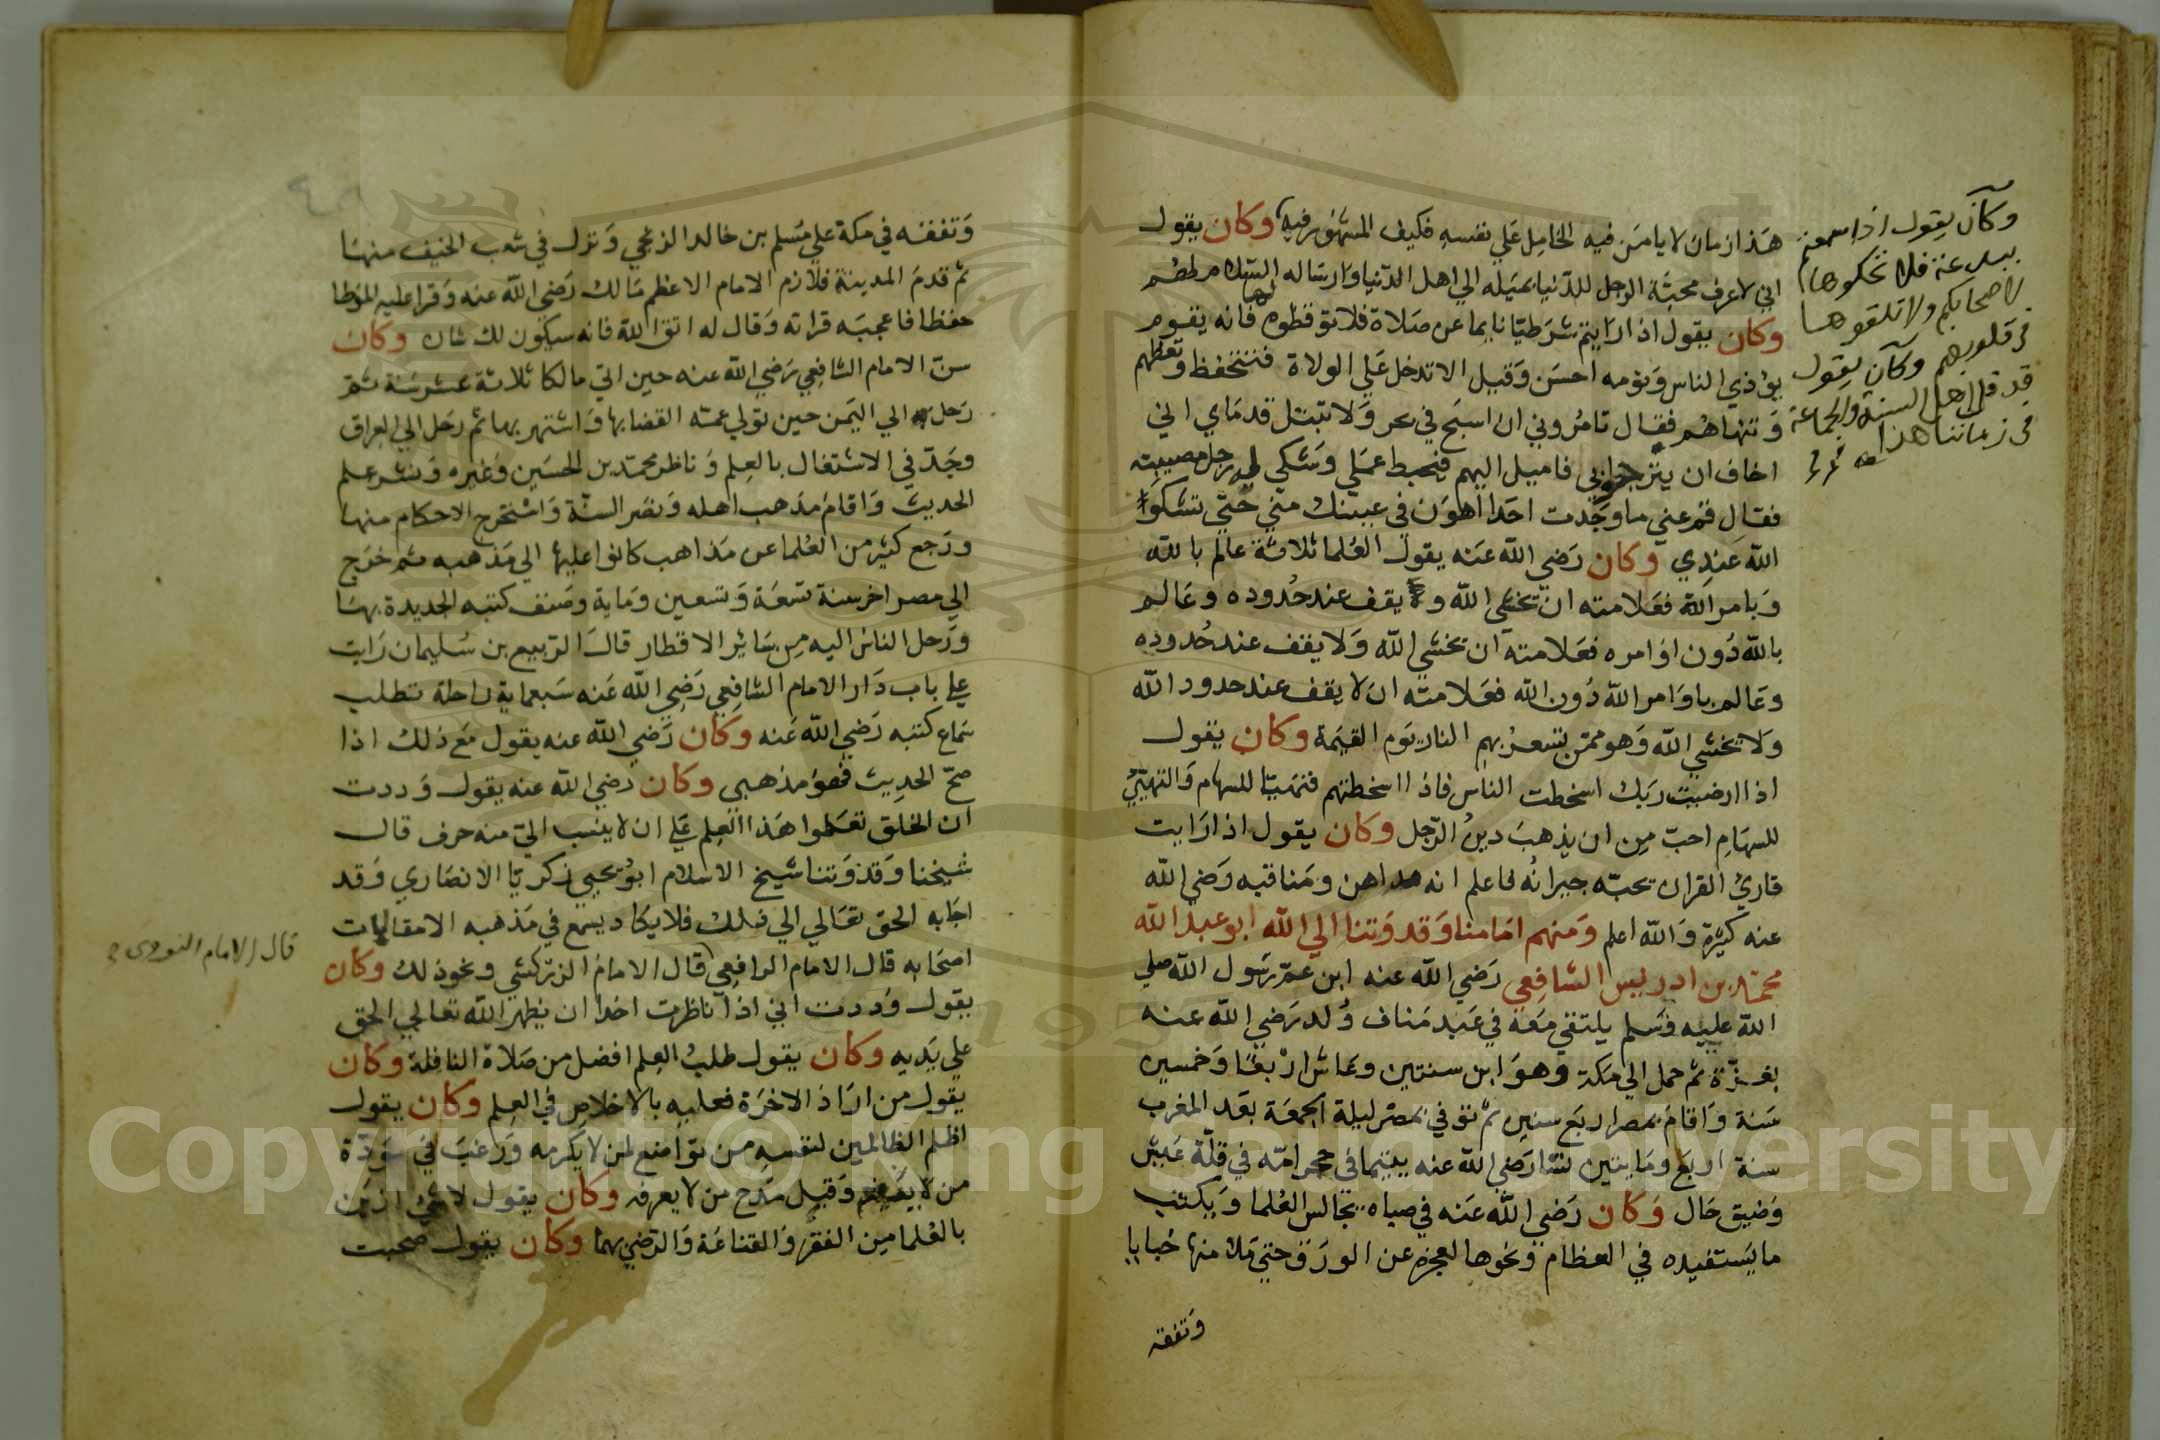 هذا زمان لا يامن فيه الخامل علي نفسه فكيف المشهور فيه وكان يقول
اني لاعرف محبة الرجل للدنيا بميله الي اهل الدنيا وارساله السلام لهم
وكان يقول اذا رايتم شرطيا نايما عن صلاة فلا توقظوه لها فانه يقوم
يؤذي الناس ونومه احسن وقيل الا تدخل علي الولاة فتتحفظ وتعظهم
وتنهاهم فقال تامروني ان اسبح في بحر ولا تبتل قدماي اني
اخاف ان يترحبوا بي فاميل اليهم فيحبط عملي وشكي اليه رجل مصيبته
فقال قم عني ما وجدت احدا اهون في عينك مني حتي تشكوا
الله عندي وكان رضي الله عنه يقول العلما ثلاثة عالم بالله
وبامر الله فعلامته ان يخشي الله ويقف عند حدوده وعالم
بالله دون اوامره فعلامته ان يخشي الله ولا يقف عند حدوده
وعالم باوامر الله دون الله فعلامته ان لا يقف عند حدود الله
ولا يخشي الله وهو ممن تسعر بهم النار يوم القيمة وكان يقول
اذا ارضيت ربك اسخطت الناس فاذا اسخطتهم فتهيا للسهام والتهيئ
للسهام احب من ان يذهب دين الرجل وكان يقول اذا رايت
قارئ القران يحبه جيرانه فاعلم انه مداهن ومناقبه رضي الله
عنه كثيرة والله اعلم ومنهم امامنا وقدوتنا الي الله ابو عبد الله
محمد بن ادريس الشافعي رضي الله عنه ابن عم رسول الله صلي
الله عليه وسلم يلتقي معه في عبد مناف ولد رضي الله عنه
بغزة ثم حمل الي مكة وهو ابن سنتين وعاش اربعا وخمسين
سنة واقام بمصر اربع سنين ثم توفي بمصر ليلة الجمعة بعد المغرب
سنة اربع ومايتين نشا رضي الله عنه يتيما في حجر امه في قلة عيش
وضيق حال وكان رضي الله عنه في صباه يجالس العلما ويكتب
ما يستفيده في العظام ونحوها لعجزه عن الورق حتي ملا منها خبايا
وتفقه
وكان يقول اذا سمعتم
ببدعة فلا تحكوها
لاصحابكم ولا تلقوها
في قلوبهم وكان يقول
قد قل اهل السنة والجماعة
في زماننا هذا
وتفقه في مكة علي مسلم بن خالد الزنجي ونزل في شعب الخيف منها
ثم قدم المدينة فلازم الامام الاعظم مالك رضي الله عنه وقرا عليه الموطا
حفظا فاعجبه قراته وقال له اتق الله فانه سيكون لك شان وكان
سن الامام الشافعي رضي الله عنه حين اتي مالكا ثلاثة عشر سنة ثم
رحل الي اليمن حين تولي عمه القضا بها واشتهر بها ثم رحل الي العراق
وجد في الاشتغال بالعلم وناظر محمد بن الحسين وغيره ونشر علم
الحديث واقام مذهب اهله ونصر السنة واستخرج الاحكام منها
ورجع كثير من العلما عن مذاهب كانوا عليها الي مذهبه ثم خرج
الي مصر اخر سنة تسعة وتسعين وماية وصنف كتبه الجديدة بها
ورحل الناس اليه من ساير الاقطار قال الربيع بن سليمان رايت
علي باب دار الامام الشافعي رضي الله عنه سبعماية راحلة تطلب
سماع كتبه رضي الله عنه وكان رضي الله عنه يقول مع ذلك اذا
صح الحديث فهو مذهبي وكان رضي الله عنه يقول وددت
ان الخلق تعلموا هذا العلم علي ان لا ينسب الي منه حرف قال
شيخنا وقدوتنا شيخ الاسلام ابو يحيي زكريا الانصاري وقد
اجابه الحق تعالي الي ذلك فلا يكاد يسمع في مذهبه الا مقالات
اصحابه قال الامام الرافعي قال الامام الزركشي ونحو ذلك وكان
يقول وددت اني اذا ناظرت احدا ان يظهر الله تعالي الحق
علي يديه وكان يقول طلب العلم افضل من صلاة النافلة وكان
يقول من اراد الاخرة فعليه بالاخلاص في العلم وكان يقول
اظلم الظالمين لنفسه من تواضع لمن لا يكرمه ورغب في مودة
من لا ينفعه وقبل مدح من لا يعرفه وكان يقول لا شئ ازين
بالعلما من الفقر والقناعة والرضي بهما وكان يقول صحبت
قال الامام النووي